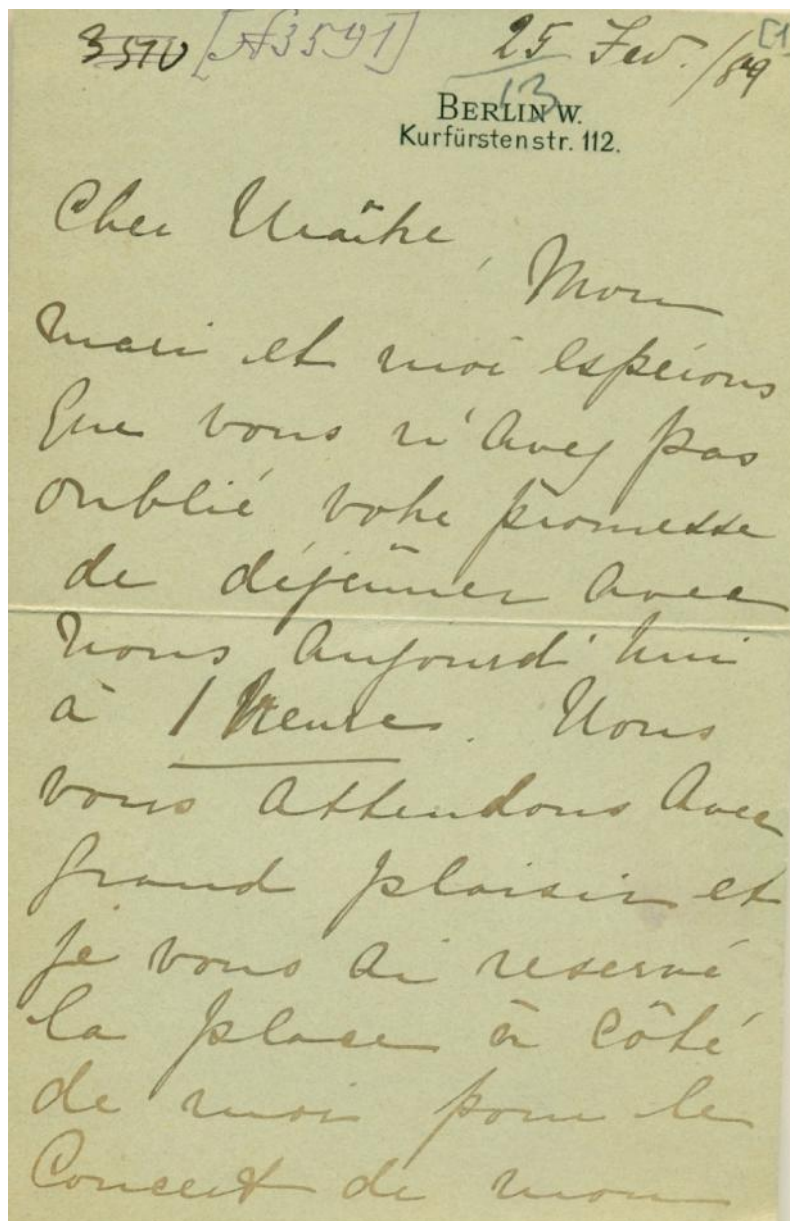 3590 [N3591] 25 Fev. /89 [1]
13
BERLIN W.
Kurfürstenstr. 112.
Cher Maître,
Mon
mari et moi espérons
que vous n'avez pas
oublié votre promesse
de déjeûner avec
nous aujourd'hui
à 1 heure. Nous
vous attendons avec
grand plaisir et
je vous ai reservé
la place à côté
de moi pour le
Concert de mon